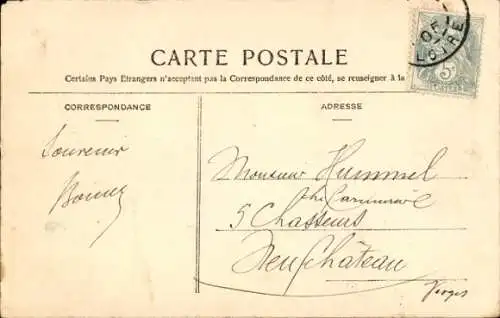 CARTE POSTALE
Certains Pays Etrangers n'acceptent pas la Correspondance de ce côté, se renseigner à la
CORRESPONDANCE
ADRESSE
Souvenir
Monsieur Hummel
5 Chasseurs
Neufchâteau
Vosges
LOIRE
5c